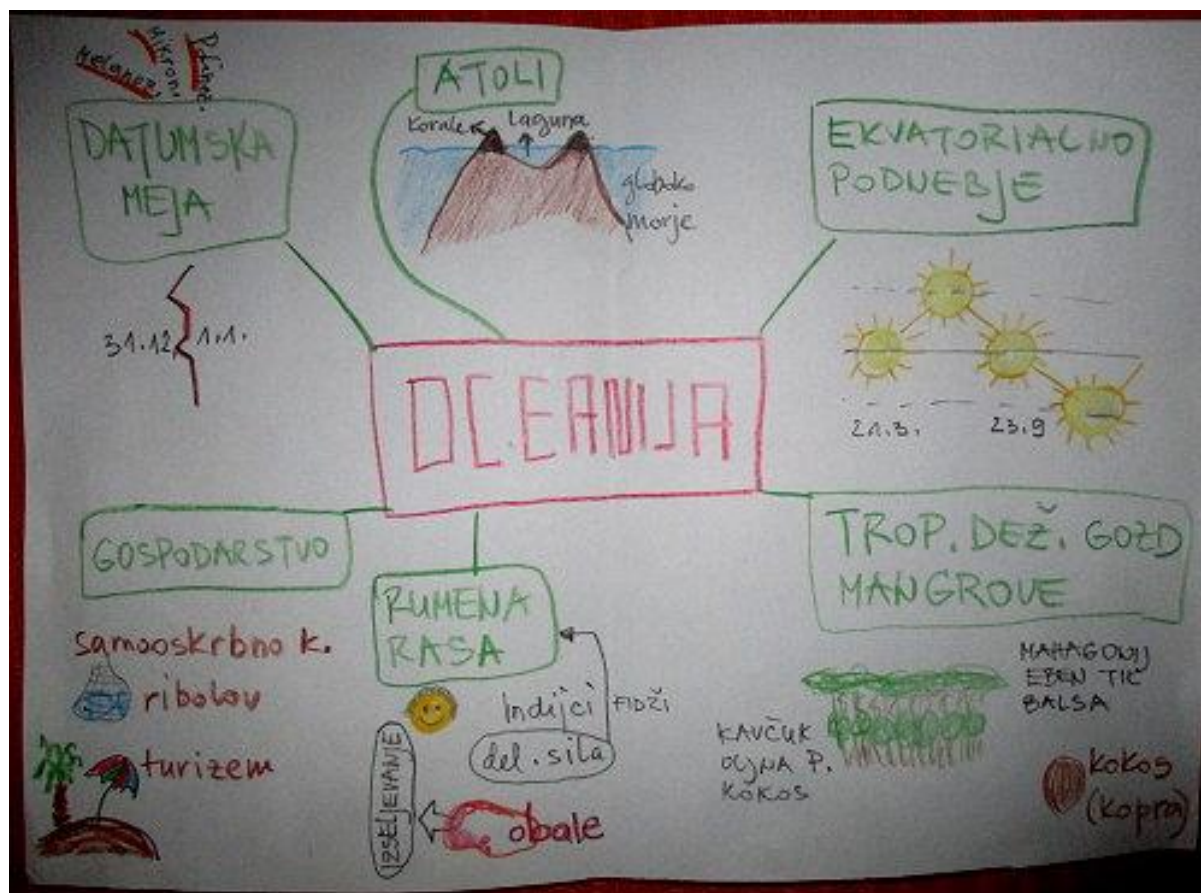 Melanez.
Mikron.
Polinez.
DATUMSKA
MEJA
31.12. 1.1.
ATOLI
Korale Laguna
globoko
morje
EKVATORIALNO
PODNEBJE
21.3. 23.9
OCEANIJA
GOSPODARSTVO
samooskrbno k.
ribolov
turizem
RUMENA
RASA
Indijci FIDŽI
del. sila
IZSELJEVANJE
obale
TROP. DEŽ. GOZD
MANGROVE
MAHAGONIJ
EBEN TIK
BALSA
KAVČUK
OLJNA P.
KOKOS
kokos
(kopra)